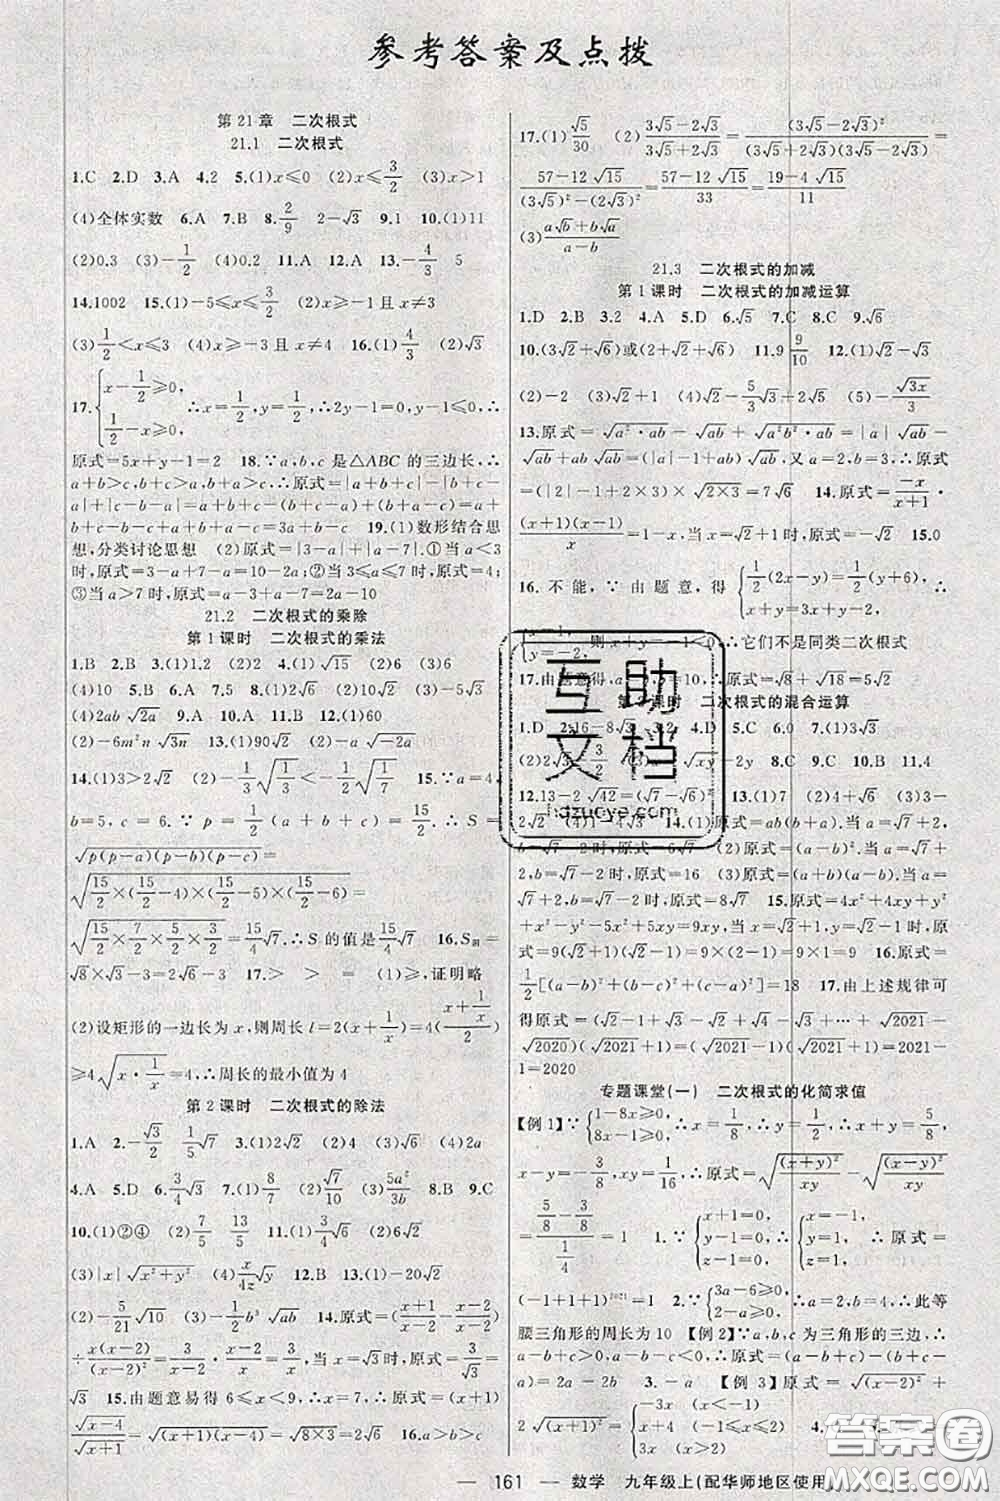 参考答案及点拨
第21章 二次根式
21.1 二次根式
1.C 2.D 3.A 4.2 5.(1)x≤0 (2)x≤3/2 (3)x>1
(4)全体实数 6.A 7.B 8.2/9 2-√3 9.1 10.(1)11
(2)0.3 (3)-1/2 (4)0.2 11.A 12.A 13.-4/3 5
14.1002 15.(1)-5≤x≤3/2 (2)x≥-1且x≠3
(3)1/2<x≤3 (4)x≥-3且x≠4 16.(1)4/3 (2)√3
17.{x-1/2≥0, 1/2-x≥0, ∴x=1/2,y=1/2,∴2y-1=0,y-1≤0,∴
原式=5x+y-1=2 18.∵a,b,c是△ABC的三边长,∴
a+b>c,b+c>a,b+a>c,∴原式=|a+b+c|-|b+c-
a|+|c-b-a|=a+b+c-(b+c-a)+(a+b-c)=a+
b+c-b-c+a+b+a-c=3a+b-c 19.(1)数形结合思
想,分类讨论思想 (2)原式=|3-a|+|a-7|.①当a<3
时,原式=3-a+7-a=10-2a;②当3≤a≤7时,原式=4;
③当a>7时,原式=a-3+a-7=2a-10
21.2 二次根式的乘除
第1课时 二次根式的乘法
1.B 2.B 3.(1)2 (2)2 4.(1)√15 (2)6 (3)6
(4)10 5.B 6.A 7.B 8.(1)2√6 (2)2√6 (3)6√2
(4)2ab√2a 9.A 10.A 11.B 12.(1)60
(2)-6m²n√3n 13.(1)90√2 (2)-a√-2a
14.(1)3>2√2 (2)-√(1/3)<-1/2√(1/7) 15.∵a=4,
b=5,c=6.∵p=1/2(a+b+c)=15/2.∴S=
√(p(p-a)(p-b)(p-c))=
√(15/2×(15/2-4)×(15/2-5)×(15/2-6))=
√(15/2×7/2×5/2×3/2)=15/4√7.∴S的值是15/4√7 16.S阴=
√8×√3-3=2√6-3 17.> > = (1)≥,证明略
(2)设矩形的一边长为x,则周长l=2(x+1/x)=4((x+1/x)/2)
≥4√(x·1/x),∴周长的最小值为4
第2课时 二次根式的除法
1.A 2.-√3/2 1/5√7 3.(1)2√2 (2)4 (3)√2 (4)2a
4.A 5.D 6.3/4√3 7.(1)8/7 (2)√7/10 (3)5a²/3b 8.B 9.C
10.(1)②④ (2)7/5 13/5 11.(1)3/4√6 (2)6√2
(3)|x|√(x²+y²) (4)x/4z√y 12.B 13.(1)-20√2
(2)-5/21√10 (3)-1/2b³√ab 14.原式=(x+2/x-2-x-2/x-2)
÷x(x-2)/(x-2)²=3/x-2·x-2/x=3/x,当x=√3时,原式=
√3 15.由题意易得6≤x<9,∴x=7,∴原式=(x+1)
√(x-4)/√(x+1)=√((x+1)(x-4))=√(8×3)=2√6 16.a>b>c
17.(1)√5/30 (2)(3√5-2√3)/(3√5+2√3)=(3√5-2√3)²/(3√5+2√3)(3√5-2√3)=
(57-12√15)/((3√5)²-(2√3)²)=(57-12√15)/33=(19-4√15)/11
(3)(a√b+b√a)/(a-b)
21.3 二次根式的加减
第1课时 二次根式的加减运算
1.D 2.B 3.2 4.A 5.D 6.√5 7.C 8.C 9.√6
10.(3√2+√6)或(2√6+√3) 11.9 9/10 12.(1)√2-√3
(2)-2 (3)√2+1 (4)√2-5/3√3+2 (5)-√3x/3
13.原式=√(a²·ab)-√ab+√(a²b²·ab)=|a|√ab
-√ab+ab√ab=(|a|-1+ab)√ab,又a=2,b=3,∴原式
=(|2|-1+2×3)×√(2×3)=7√6 14.原式=-x/x+1·
(x+1)(x-1)/x=1-x,当x=1+√2时,原式=-√2 15.0
16.不能,∵由题意,得{1/2(2x-y)=1/2(y+6), y+3x=3x-2,
y=-2, 则x+y=-1<0,∴它们不是同类二次根式
17.由题意得, =10,∴原式=√8+√18=5√2
二次根式的混合运算
1.D 3.2 4.D 5.C 6.0 7.(1)3√3
8.C 9.C 10.B 11.4
12.13-2√42=(√7-√6)² 13.(1)2√6 (2)4√6 (3)3-
14.(1)原式=ab(a+b).当a=√7+2,
b=√7-2时,原式=6√7 (2)原式=(a-b)².当a=√7
+2,b=√7-2时,原式=16 (3)原式=(a+b)(a-b).当a
=√7+2,b=√7-2时,原式=8√7 15.原式=4x²+4xy+y²+
x²-y²-5x²+5xy=9xy,当x=√2+1,y=√2-1时,
原式=9(√2+1)(√2-1)=9×(2-1)=9×1=9 16.原式=
1/2[(a-b)²+(b-c)²+(c-a)²]=18 17.由上述规律可
得原式=(√2-1+√3-√2+√4-√3+…+√2021-
√2020)(√2021+1)=(√2021-1)(√2021+1)=2021-
1=2020
专题课堂(一) 二次根式的化简求值
【例1】∵{1-8x≥0, 8x-1≥0, ∴x=1/8,∴y=1/2,∴x+y=5/8,
x-y=-3/8,xy=1/16,∴原式=√((x+y)²/xy)-√((x-y)²/xy)
=(5/8-3/8)/(1/4)=1 1.∵{x+1=0, y-1=0, z-1=0, ∴{x=-1, y=1, z=1, ∴原式=
(-1+1+1)²⁰²¹=1 2.∵{3a-6≥0, 2-a≥0, ∴a=2,b=4,∴此等
腰三角形的周长为10 【例2】∵a,b,c为三角形的三边,∴
a-b+c>0,c-a-b<0,∴原式=(a-b+c)-(b+a-
c)=2a-2b 3.-a 【例3】原式=√(x-2)²+
2√(x+1)²={-3x (x<-1) 4-x (-1≤x≤2) 4.
161 数学 九年级上(配华师地区使用)
互助文档
hdzuoye.com
答案圈
MXQE.COM